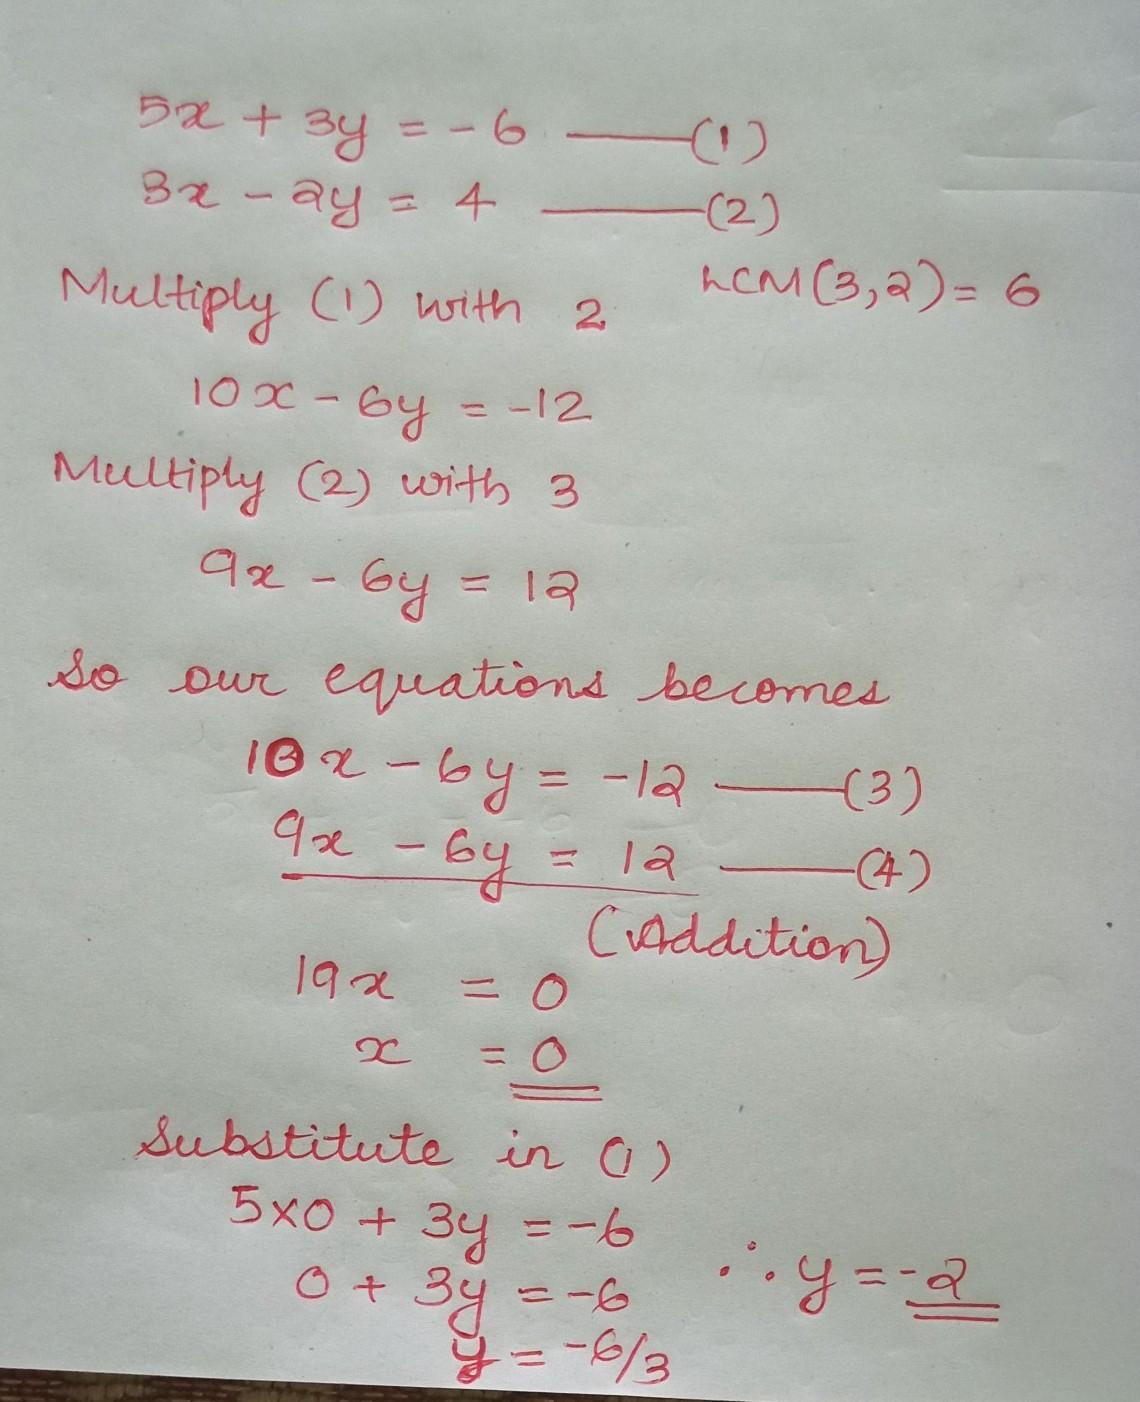 5x + 3y = -6 ——(1)
3x - 2y = 4 ——(2)
LCM(3,2) = 6
Multiply (1) with 2
10x - 6y = -12
Multiply (2) with 3
9x - 6y = 12
So our equations becomes
10x - 6y = -12 ——(3)
9x - 6y = 12 ——(4)
(Addition)
19x = 0
x = 0
Substitute in (1)
5×0 + 3y = -6
0 + 3y = -6
y = -6/3
∴ y = -2